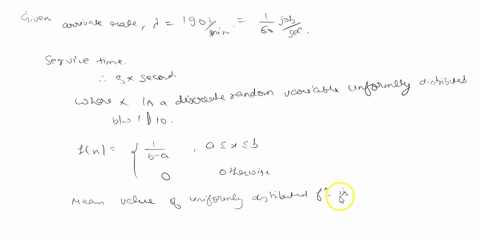 Given arrivate rate, λ = 190/min = 1/60 job/sec.
Service time.
∴ 3x second
where x in a discrete random variable uniformly distributed
b/w 1 10.
f(n) = { 1/b-a , a ≤ x ≤ b
0 otherwise
Mean value of uniformly distributed fⁿ is